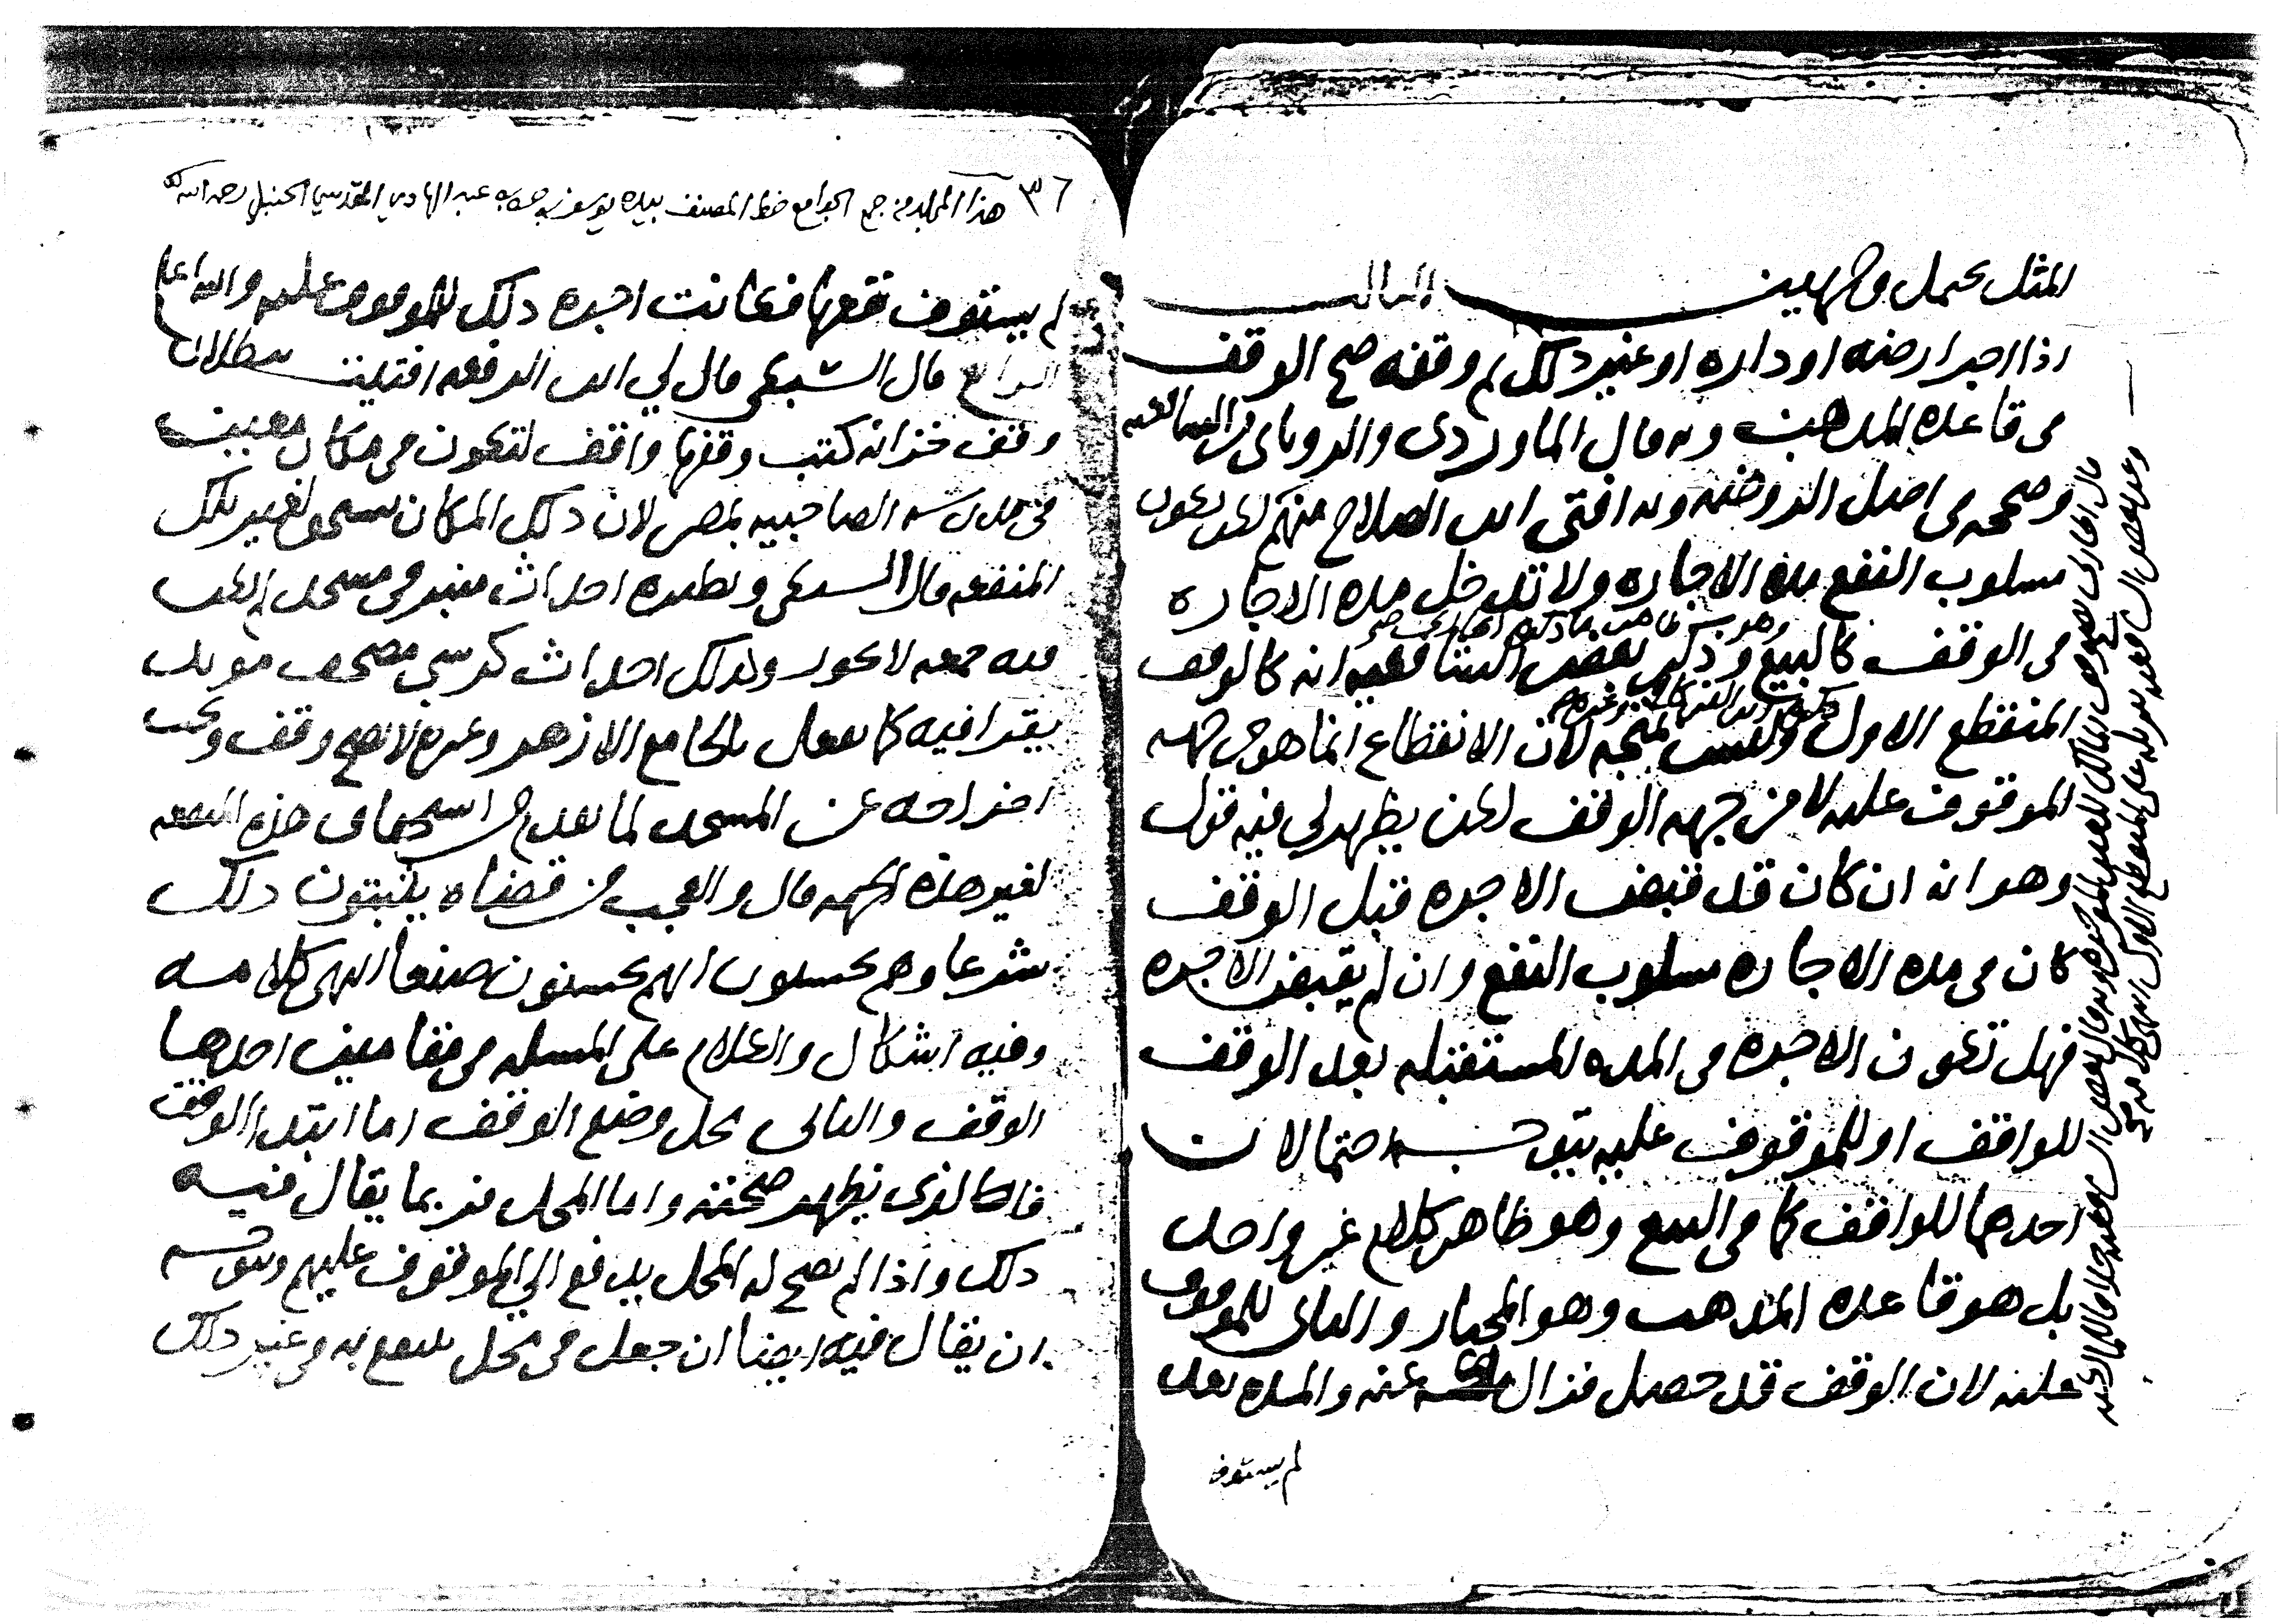 المثل يحتمل وجهين الثالث
اذا اجر ارضه او داره او غير ذلك ثم وقفه صح الوقف
في قاعدة المذهب وبه قال الماوردي والروياني من الشافعيه
وصححه في اصل الروضه وبه افتى ابن الصلاح منهم لكن يكون
مسلوب النفع مدة الاجاره ولا تدخل مدة الاجاره
في الوقف كالبيع وذكر بعض الشافعيه انه كالوقف
المنقطع الاول وليس بمتجه لان الانقطاع انما هو من جهه
الموقوف عليه لا من جهه الوقف لكن يظهر لي فيه قول
وهو انه ان كان قد قبض الاجره قبل الوقف
كان في مده الاجاره مسلوب النفع وان لم يقبض الاجره
فهل تكون الاجره في المده المستقبله بعد الوقف
للواقف او للموقوف عليه يتوجه احتمالان
احدهما للواقف كما في البيع وهو ظاهر كلام غير واحد
بل هو قاعده المذهب وهو المختار والثاني للموقوف
عليه لان الوقف قد حصل فزال ملكه عنه والمده بعد
لم يستوف
٣٦ هذا المجلد من جمع الجوامع خط المصنف بيده يوسف بن حسن بن عبد الهادي المقدسي الحنبلي رحمه الله
لم يستوف نفعها فكانت اجره ذلك للموقوف عليه والله اعلم
الرابع قال السبكي قال لي ابن الرفعه افتيت ببطلان
وقف خزانه كتب وقفها واقف لتكون في مكان معين
في مدرسه الصاحبيه بمصر لان ذلك المكان مستحق لغير تلك
المنفعه قال السبكي ونظيره احداث منبر في مسجد لم يكن
فيه جمعه لا يجوز وكذلك احداث كرسي مصحف مؤبد
يقرا فيه كما يفعل بالجامع الازهر وغيره لا يصح وقفه ويجب
اخراجه من المسجد لما تقدم من استحقاق هذه المنفعه
لغير هذه الجهه قال والعجب من قضاه يثبتون ذلك
شرعا وهم يحسبون انهم يحسنون صنعا انتهى كلامه
وفيه اشكال والكلام على المسئله في مقامين احدهما
الوقف والثاني محل وضع الوقف اما ابتدا الوقف
فالذي يظهر صحته واما المحل فربما يقال فيه
ذلك واذا لم يصح له المحل يدفع الى الموقوف عليهم ويتوجه
ان يقال فيه ايضا ان جعل في محل ينتفع به في غير ذلك